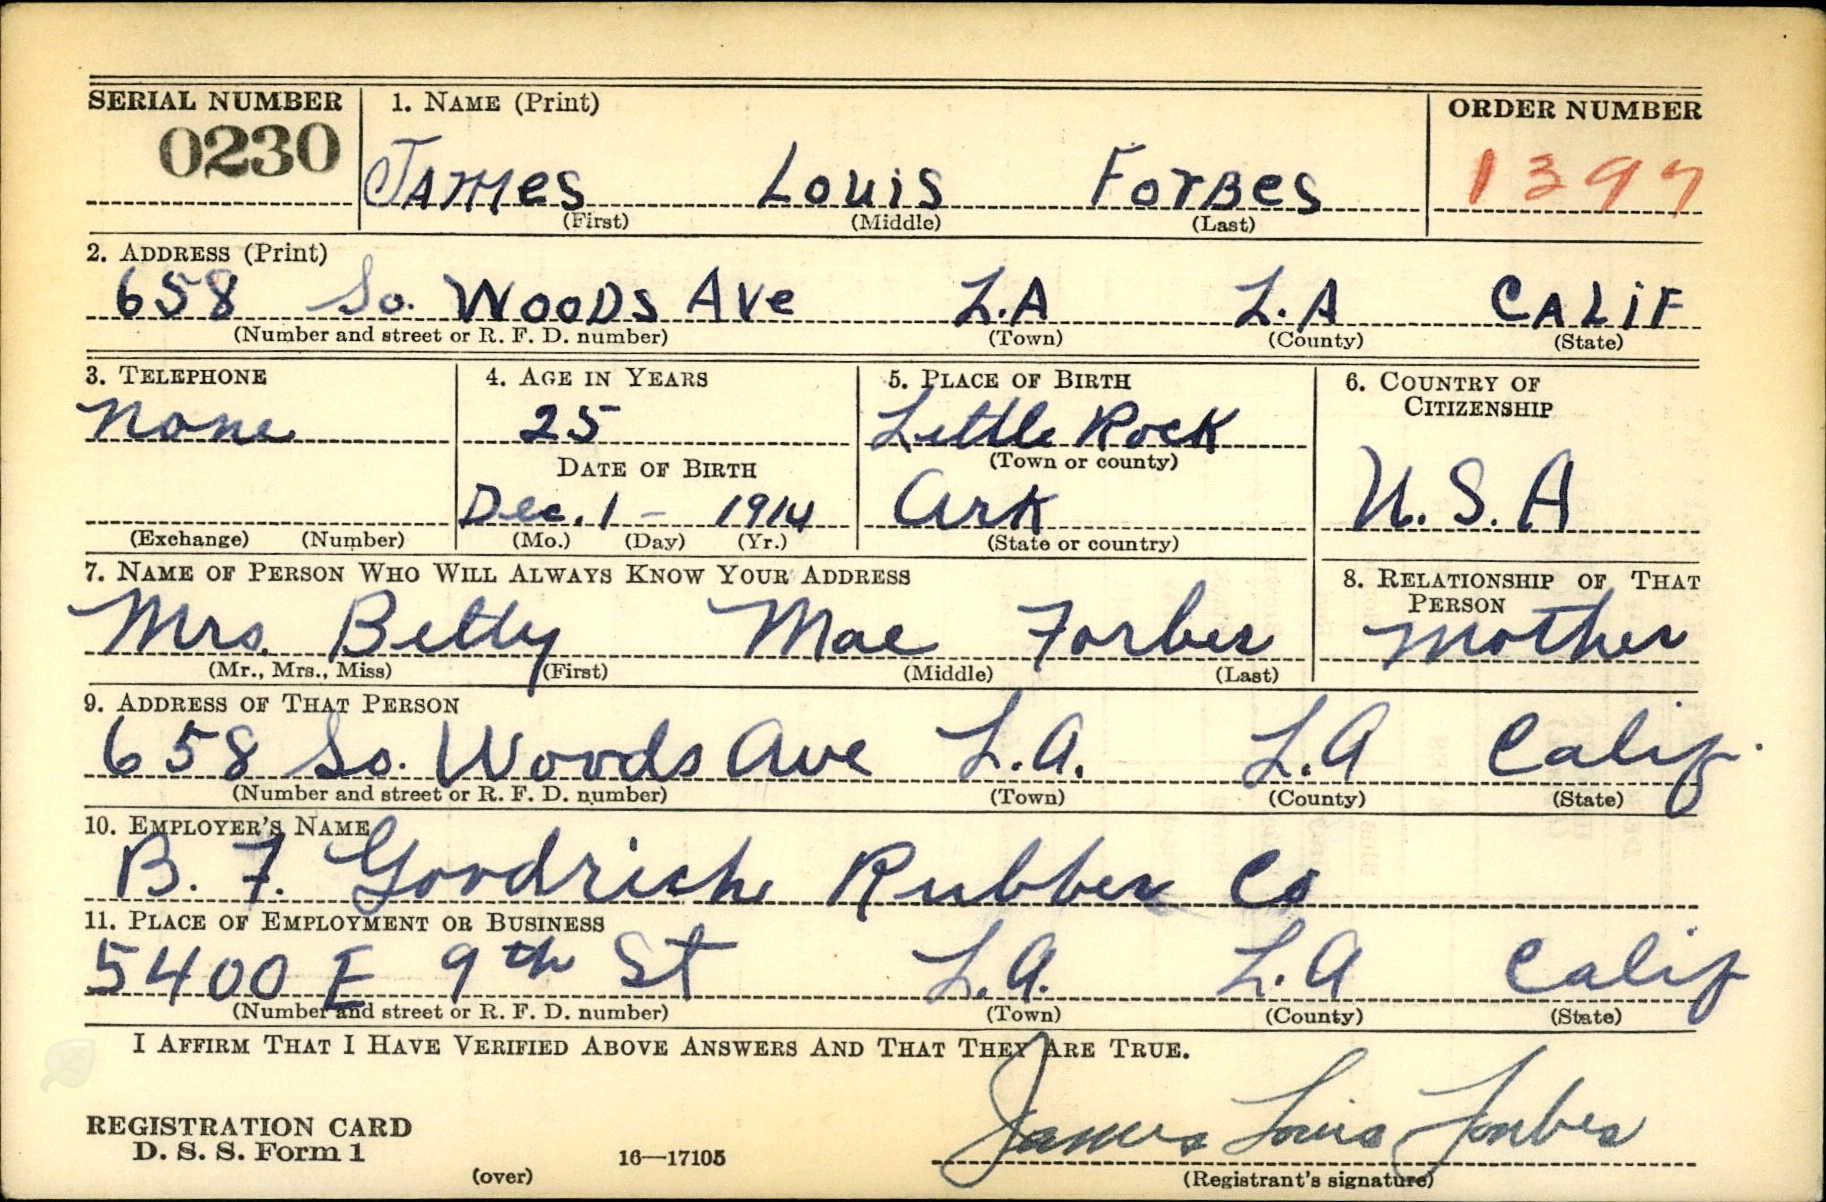 SERIAL NUMBER 1. NAME (Print) ORDER NUMBER
0230 JAMES LOUIS FORBES 1397
(First) (Middle) (Last)
2. ADDRESS (Print)
658 So. WOODS AVe L.A L.A CALIF
(Number and street or R. F. D. number) (Town) (County) (State)
3. TELEPHONE 4. AGE IN YEARS 5. PLACE OF BIRTH 6. COUNTRY OF CITIZENSHIP
None 25 Little Rock
DATE OF BIRTH (Town or county)
Dec. 1 - 1914 Ark U.S.A
(Exchange) (Number) (Mo.) (Day) (Yr.) (State or country)
7. NAME OF PERSON WHO WILL ALWAYS KNOW YOUR ADDRESS 8. RELATIONSHIP OF THAT PERSON
Mrs. Betty Mae Forbes Mother
(Mr., Mrs., Miss) (First) (Middle) (Last)
9. ADDRESS OF THAT PERSON
658 So. Woods Ave L.A. L.A Calif.
(Number and street or R. F. D. number) (Town) (County) (State)
10. EMPLOYER'S NAME
B. F. Goodrich Rubber Co
11. PLACE OF EMPLOYMENT OR BUSINESS
5400 E 9th St L.A. L.A Calif
(Number and street or R. F. D. number) (Town) (County) (State)
I AFFIRM THAT I HAVE VERIFIED ABOVE ANSWERS AND THAT THEY ARE TRUE.
James Louis Forbes
REGISTRATION CARD
D. S. S. Form 1 16—17105
(over) (Registrant's signature)